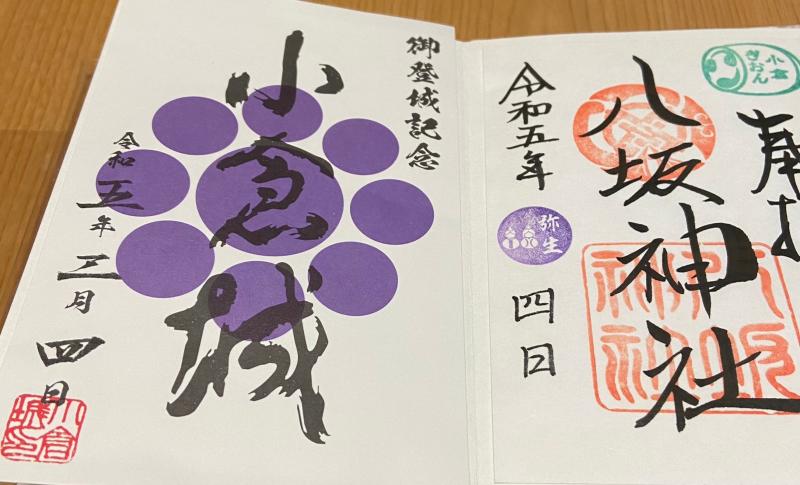 奉拝
小倉
ぎおん
八坂神社
八坂
神社
令和五年
弥生
四日
御登城記念
小倉城
令和五年三月四日
小倉
城印